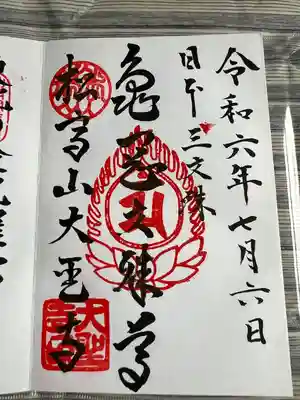 令和六年七月六日
日本三文殊
亀岡文殊尊
松高山大聖寺